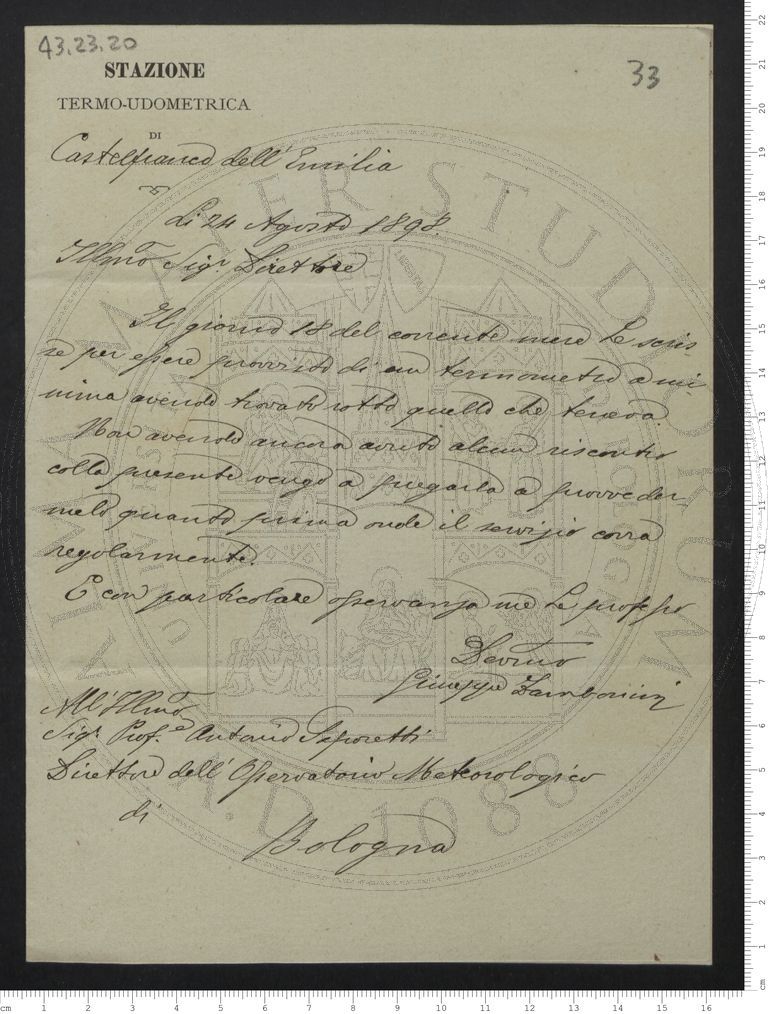 43.23.20
33
STAZIONE
TERMO-UDOMETRICA
DI
Castelfranco dell'Emilia
Li 24 Agosto 1898.
Illmo Sigr. Direttore
Il giorno 18 del corrente mese Le scris-
se per essere provvisto di un termometro a mi-
nima avendo trovato rotto quello che teneva.
Non avendo ancora avuto alcun riscontro
colla presente vengo a pregarla a provveder-
melo quanto prima onde il servizio corra
regolarmente.
E con particolare osservanza me Le professo
Devmo
Giuseppe Zambonini
All'Illmo
Sigr. Prof.e Antonio
Direttore dell'Osservatorio Meteorologico
di
Bologna
ALMA MATER STUDIORUM
A.D. 1088